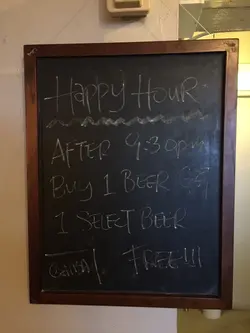 HAPPY HOUR
AFTER 9:30pm
BUY 1 BEER GET
1 SELECT BEER
FREE!!!